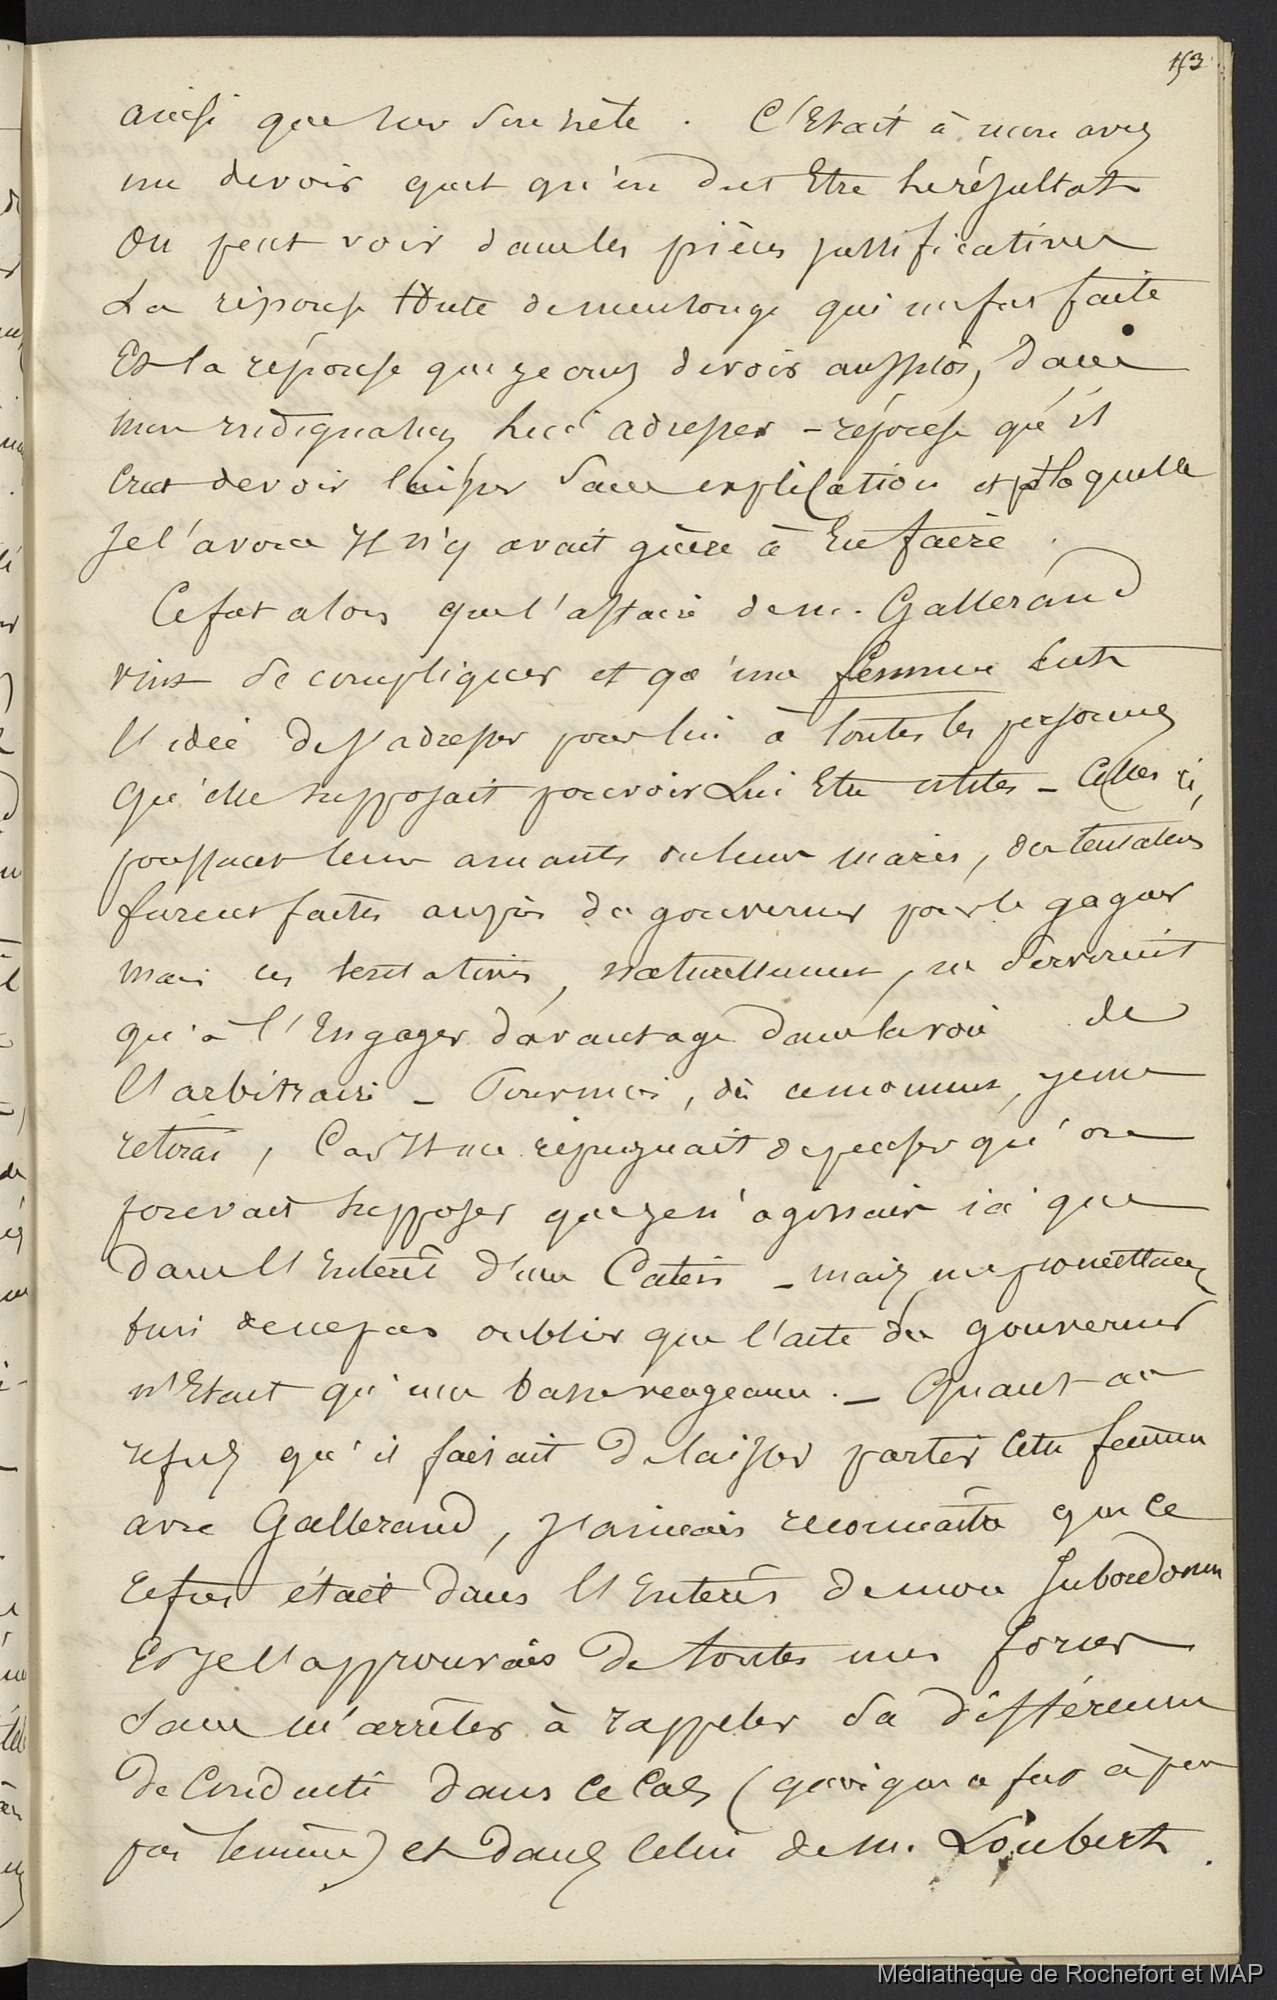 153
ainsi que sur son hète. C'Etait à mon avis
un devoir quel qu'en dut Etre le résultat
On peut voir dans les pièces justificatives
La réponse toute de mensonge qui me fut faite
Et la réponse que je crus devoir aussitôt, dans
mon indignation, lui adresser - réponse qu'il
Crut devoir laisser Sans explication et à laquelle
Je l'avoue Il n'y avait guère à En faire.
Ce fut alors que l'affaire de M. Gallerand
vint se compliquer et qu'une femme Eut
l'idée de s'adresser pour lui à toutes les personnes
qu'elle supposait pouvoir Lui Etre utiles - Celles ci,
poussant leurs amants ou leurs maris, des tentatives
furent faites auprès du gouverneur pour le gagner
mais ces tentatives, naturellement, ne servirent
qu'à l'Engager davantage dans la voie de
l'arbitraire - Pour moi, dès ce moment, je me
retirai, Car Il me répugnait de penser qu'on
pouvait supposer que je n'agissais ici que
dans l'Intérêt d'une Catin - mais me promettant
bien de ne pas oublier que l'acte du gouverneur
n'Etait qu'une basse vengeance. - Quant au
refus qu'il faisait de laisser partir Cette femme
avec Gallerand, J'aimais reconnaître que ce
refus était dans l'Intérêt de mon Subordonné
Et Je l'approuvais de toutes mes forces
Sans m'arrêter à rappeler Sa différence
de Conduite dans ce Cas (qui quoique fut à peu
près le même) et dans Celui de M. Loubert.
Médiathèque de Rochefort et MAP